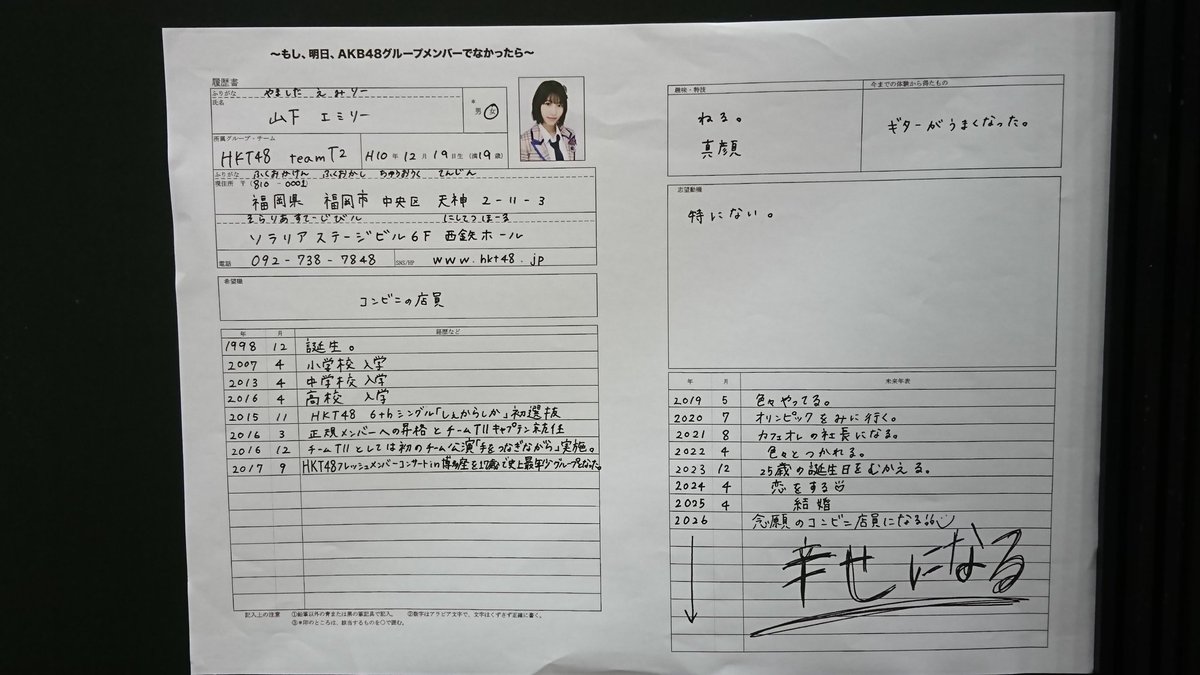 ～もし、明日、AKB48グループメンバーでなかったら～
履歴書
ふりがな やました えみりー
氏名 山下 エミリー
* 男 女
所属グループ・チーム
HKT48 teamT2 H10年12月19日生(満19歳)
ふりがな ふくおかけん ふくおかし ちゅうおうく てんじん
現住所 〒(810-0001)
福岡県 福岡市 中央区 天神 2-11-3
そらりあすてーじびる にしてつほーる
ソラリアステージビル6F 西鉄ホール
電話 092-738-7848 SNS/HP www.hkt48.jp
希望職
コンビニの店員
年 月 経歴など
1998 12 誕生。
2007 4 小学校入学
2013 4 中学校入学
2016 4 高校 入学
2015 11 HKT48 6thシングル「しぇからしか」初選抜
2016 3 正規メンバーへの昇格とチームTIIキャプテン就任
2016 12 チームTIIとしては初のチーム公演「手をつなぎながら」実施。
2017 9 HKT48フレッシュメンバーコンサートin博多座を17歳で史上最年少グループなった。
記入上の注意 ①鉛筆以外の青または黒の筆記具で記入。 ②数字はアラビア文字で、文字はくずさず正確に書く。
③*印のところは、該当するものを○で囲む。
趣味・特技
ねる。
真顔
今までの体験から得たもの
ギターがうまくなった。
志望動機
特にない。
年 月 未来年表
2019 5 色々やってる。
2020 7 オリンピックをみに行く。
2021 8 カフェオレの社長になる。
2022 4 色々とつかれる。
2023 12 25歳の誕生日をむかえる。
2024 4 恋をする♡
2025 4 結婚
2026 念願のコンビニ店員になる
幸せになる